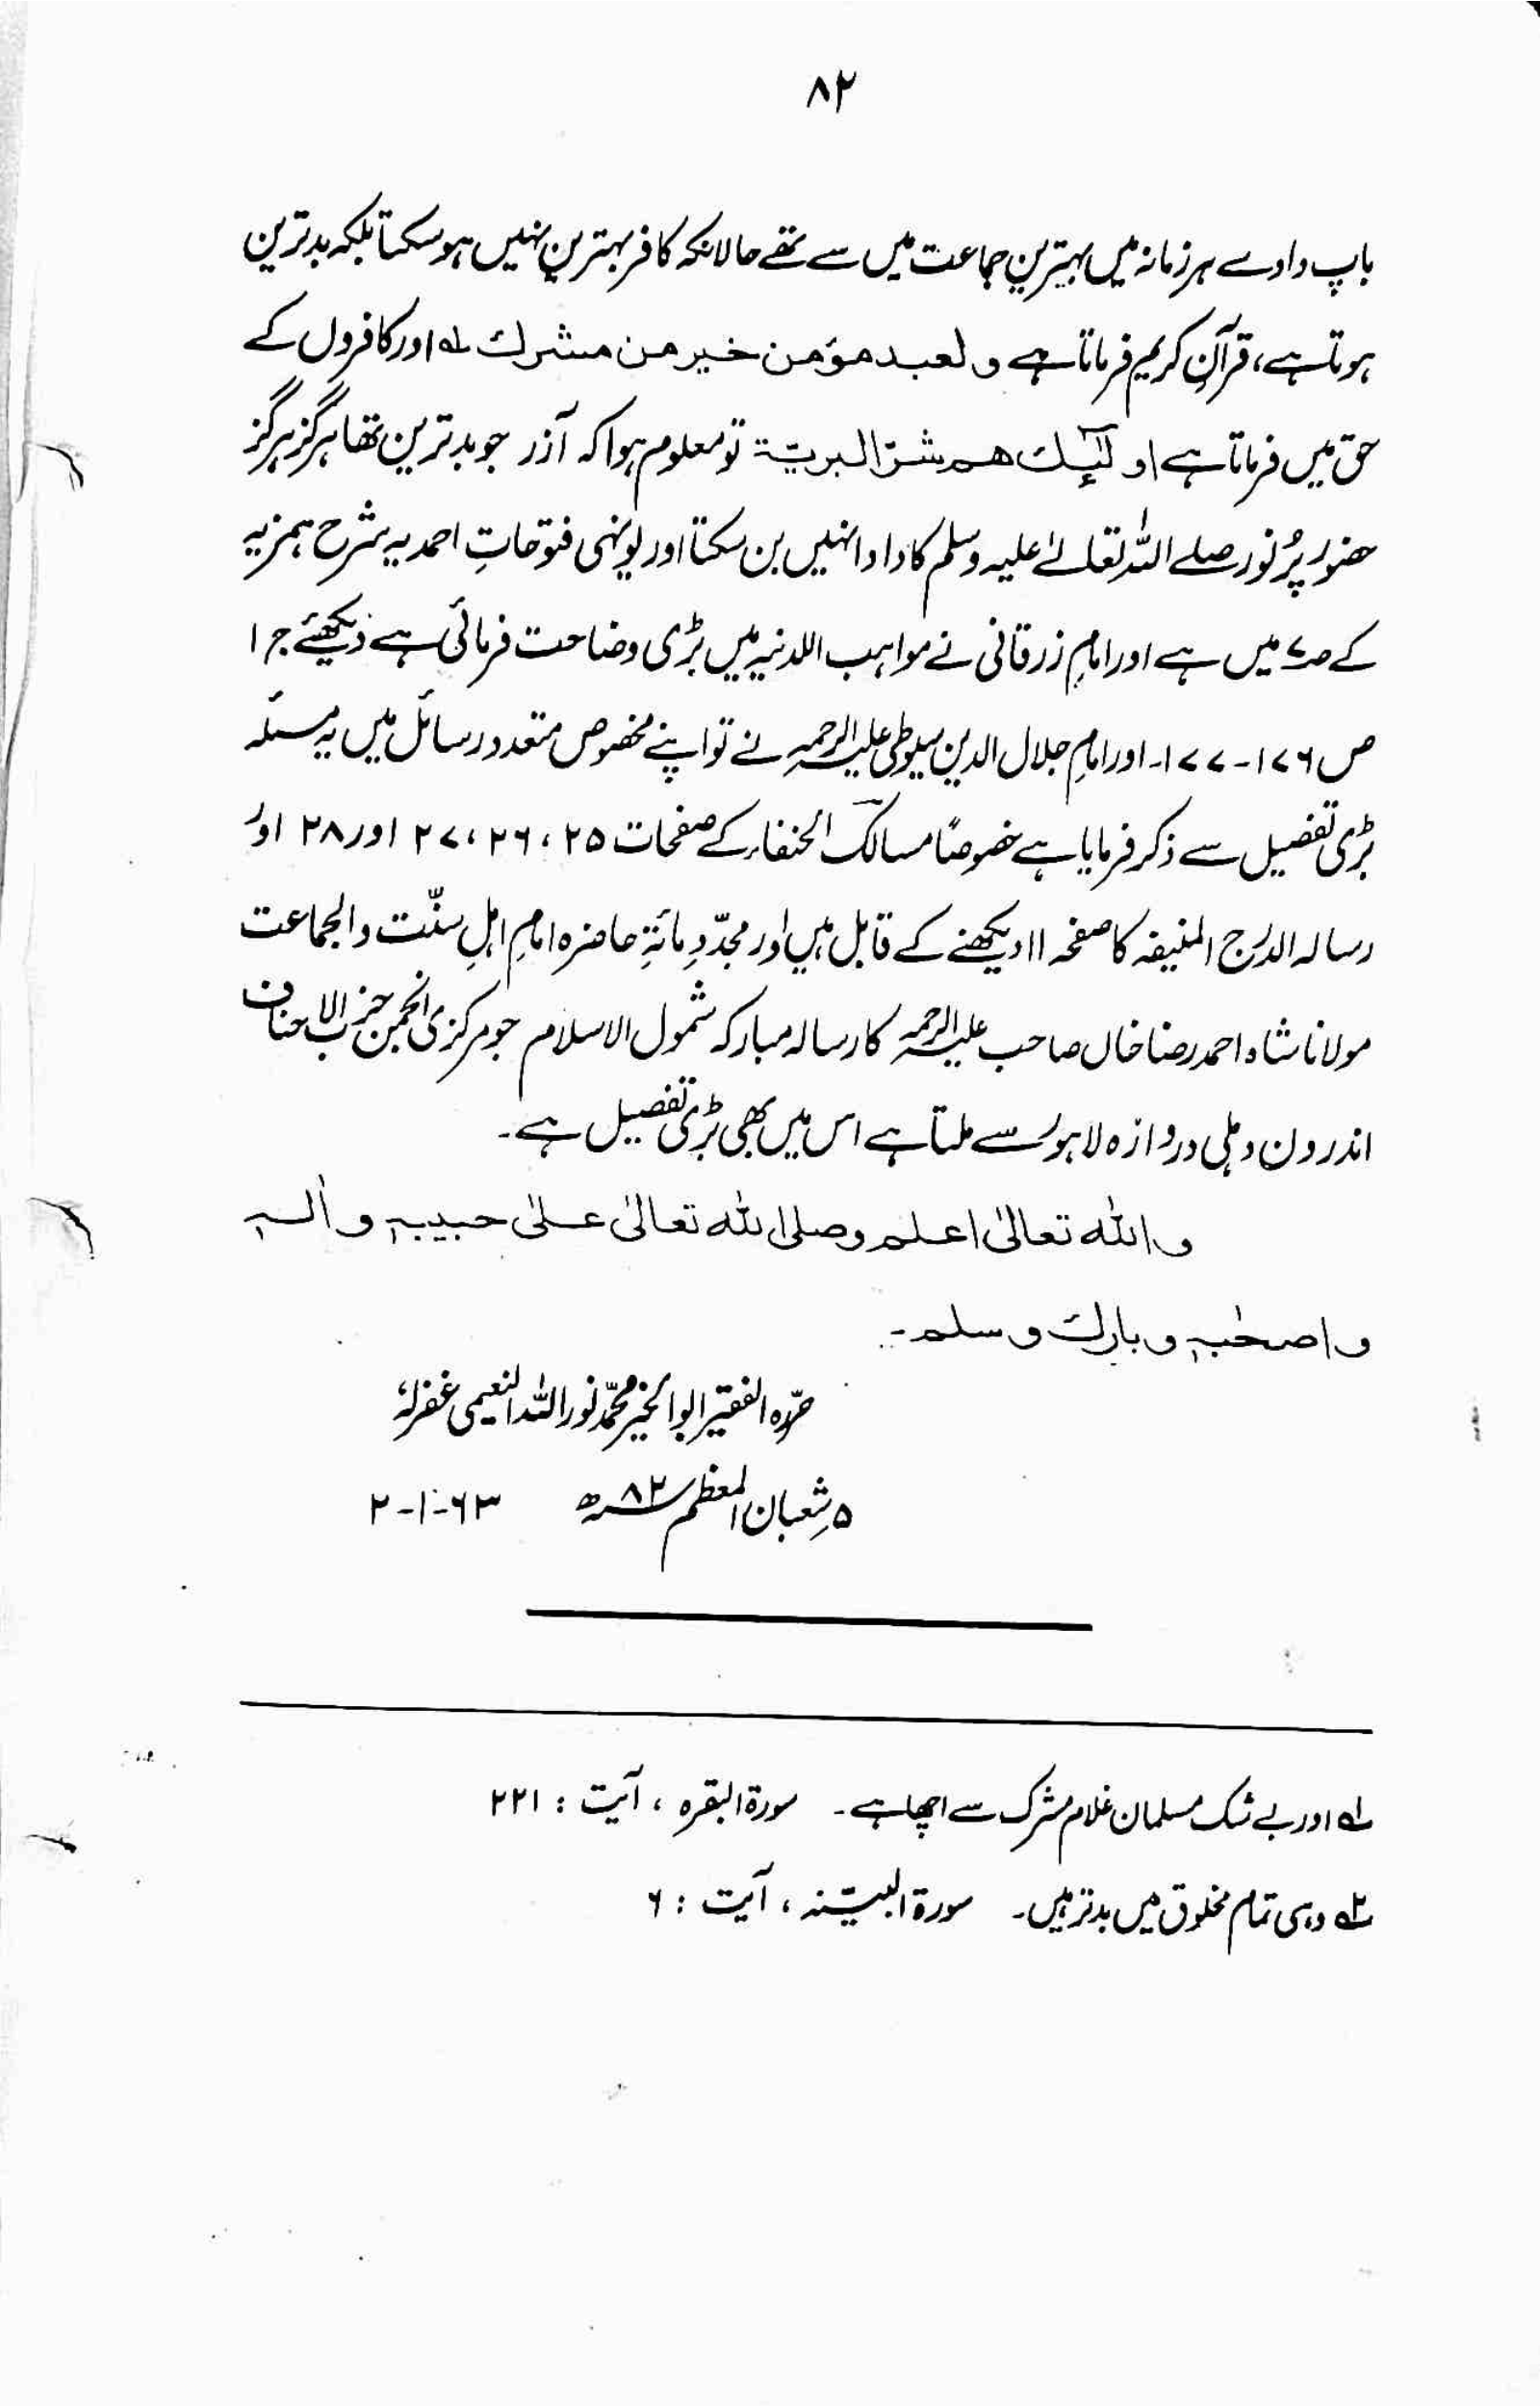 ۸۲
باپ دادے ہر زمانہ میں بہترین جماعت میں سے تھے حالانکہ کافر بہترین نہیں ہوسکتا بلکہ بدترین
ہوتا ہے، قرآنِ کریم فرماتا ہے ولعبد مؤمن خير من مشرك لہ اور کافروں کے
حق میں فرماتا ہے اولٰٓئك هم شرّ البريّة تو معلوم ہوا کہ آزر جو بدترین تھا ہرگز ہرگز
حضور پُر نور صلے اللہ تعالےٰ علیہ وسلم کا دادا نہیں بن سکتا اور یونہی فتوحاتِ احمدیہ شرح ہمزیہ
کے ص۷ میں ہے اور امامِ زرقانی نے مواہب اللدنیہ میں بڑی وضاحت فرمائی ہے دیکھئے ج ۱
ص ۱۷۶-۱۷۷۔ اور امامِ جلال الدین سیوطی علیہ الرحمہ نے تو اپنے مخصوص متعدد رسائل میں یہ مسئلہ
بڑی تفصیل سے ذکر فرمایا ہے خصوصًا مسالک الحنفاء کے صفحات ۲۵، ۲۶، ۲۷ اور ۲۸ اور
رسالہ الدرج المنیفہ کا صفحہ ۱۱ دیکھنے کے قابل ہیں اور مجدّدِ مائۃِ حاضرہ امامِ اہلِ سنّت والجماعت
مولانا شاہ احمد رضا خاں صاحب علیہ الرحمہ کا رسالہ مبارکہ شمول الاسلام جو مرکزی انجمن حزب الاحناف
اندرون دہلی دروازہ لاہور سے ملتا ہے اس میں بھی بڑی تفصیل ہے۔
والله تعالىٰ اعلم وصلى الله تعالىٰ علىٰ حبيبهٖ واٰلهٖ
واصحٰبهٖ وبارك وسلم۔
حرّرہ الفقیر ابوالخیر محمّد نور اللہ النعیمی غفرلہٗ
۵ شعبان المعظم ۸۲ھ ۶۳-۱-۲
۱ہ اور بے شک مسلمان غلام مشرک سے اچھا ہے۔ سورۃ البقرہ ، آیت : ۲۲۱
۲ہ وہی تمام مخلوق میں بدتر ہیں۔ سورۃ البیّنہ ، آیت : ۶